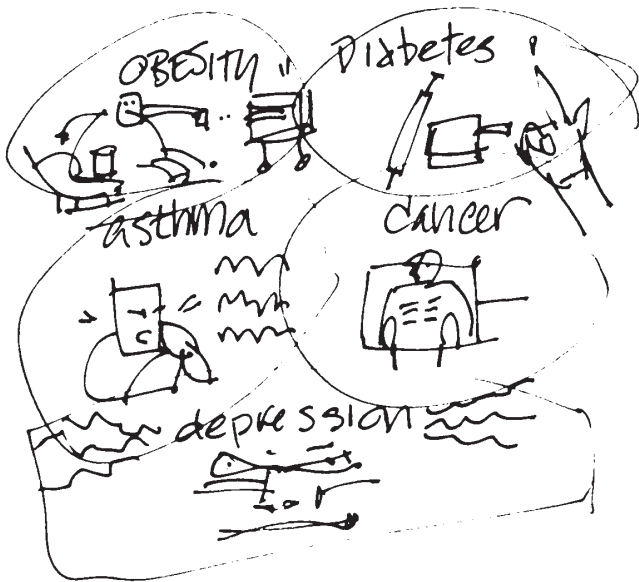 OBESITY
Diabetes
asthma
cancer
depression